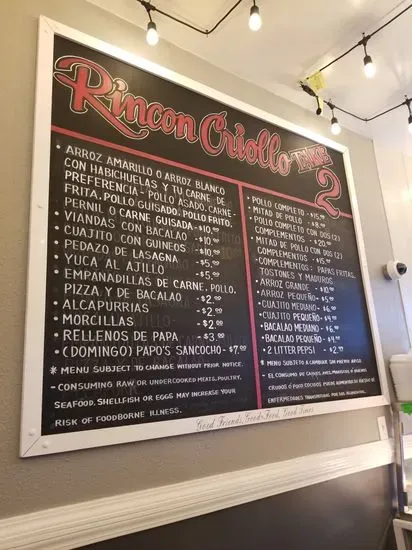 Rincon Criollo TAKE 2
• ARROZ AMARILLO O ARROZ BLANCO
CON HABICHUELAS Y TU CARNE DE
PREFERENCIA - POLLO ASADO, CARNE
FRITA, POLLO GUISADO, POLLO FRITO,
PERNIL O CARNE GUISADA - $10.00
• VIANDAS CON BACALAO - $10.00
• CUAJITO CON GUINEOS - $10.00
• PEDAZO DE LASAGNA - $5.00
• YUCA AL AJILLO - $5.00
• EMPANADILLAS DE CARNE, POLLO,
PIZZA Y DE BACALAO - $2.00
• ALCAPURRIAS - $2.00
• MORCILLAS - $2.00
• RELLENOS DE PAPA - $3.00
• (DOMINGO) PAPO'S SANCOCHO - $7.00
* MENU SUBJECT TO CHANGE WITHOUT PRIOR NOTICE.
- CONSUMING RAW OR UNDERCOOKED MEATS, POULTRY,
SEAFOOD, SHELLFISH OR EGGS MAY INCREASE YOUR
RISK OF FOODBORNE ILLNESS.
• POLLO COMPLETO - $15.00
• MITAD DE POLLO - $8.00
• POLLO COMPLETO CON DOS (2)
COMPLEMENTOS - $20.00
• MITAD DE POLLO CON DOS (2)
COMPLEMENTOS - $15.00
COMPLEMENTOS: PAPAS FRITAS,
TOSTONES Y MADUROS
• ARROZ GRANDE - $10.00
• ARROZ PEQUEÑO - $5.00
• CUAJITO MEDIANO - $6.00
• CUAJITO PEQUEÑO - $4.00
• BACALAO MEDIANO - $6.00
• BACALAO PEQUEÑO - $4.00
• 2 LITER PEPSI - $2.00
* MENU SUJETO A CAMBIAR SIN PREVIO AVISO
- EL CONSUMO DE CARNES, AVES, MARISCOS O HUEVOS
CRUDOS O POCO COCIDOS PUEDE AUMENTAR EL RIESGO DE
ENFERMEDADES TRANSMITIDAS POR LOS ALIMENTOS.
Good Friends, Good Food, Good Times